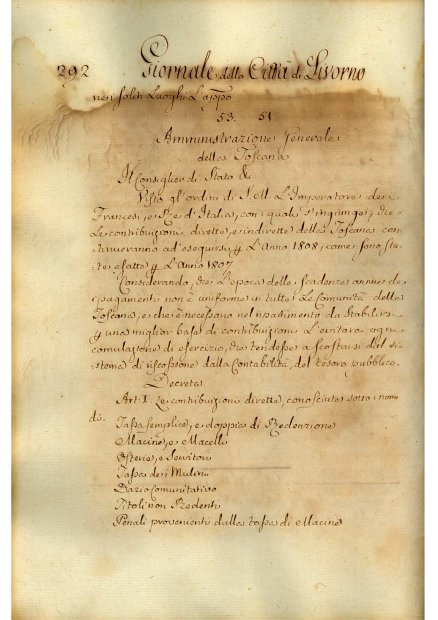 292 Giornale della Città di Livorno
nei soliti Luoghi L'appo
53. 51
Amministrazione Generale
della Toscana
Il Consiglier di Stato &
Visto gl'ordini di S. M. L'Imperatore dei
Francesi, e Re d'Italia, con i quali s'ingiunge, che
Le contribuzioni dirette, e indirette della Toscana con-
tinueranno ad eseguirsi p L'Anno 1808, come sono sta-
te esatte p L'Anno 1807
Considerando, che L'epoca delle scadenze annue de
i pagamenti non è uniforme in tutte Le Comunità della
Toscana, e che è necessario nel ripartimento da stabilirsi
p una miglior base di contribuzioni L'evitare ogni
cumulazione di esercizio, che tendesse a scostarsi dal si-
stema di riscossione dalla Contabilità, del tesoro pubblico.
Decreta
Art: I. Le contribuzioni dirette, conosciute sotto i nomi
di:
Tassa semplice, e doppia di Redenzione
Macine, e Macelli
Osterie, e Servitori
Tassa dei Mulini
Dazio Comunitativo
Titoli non Redenti
Penali provenienti dalla tassa di Macine